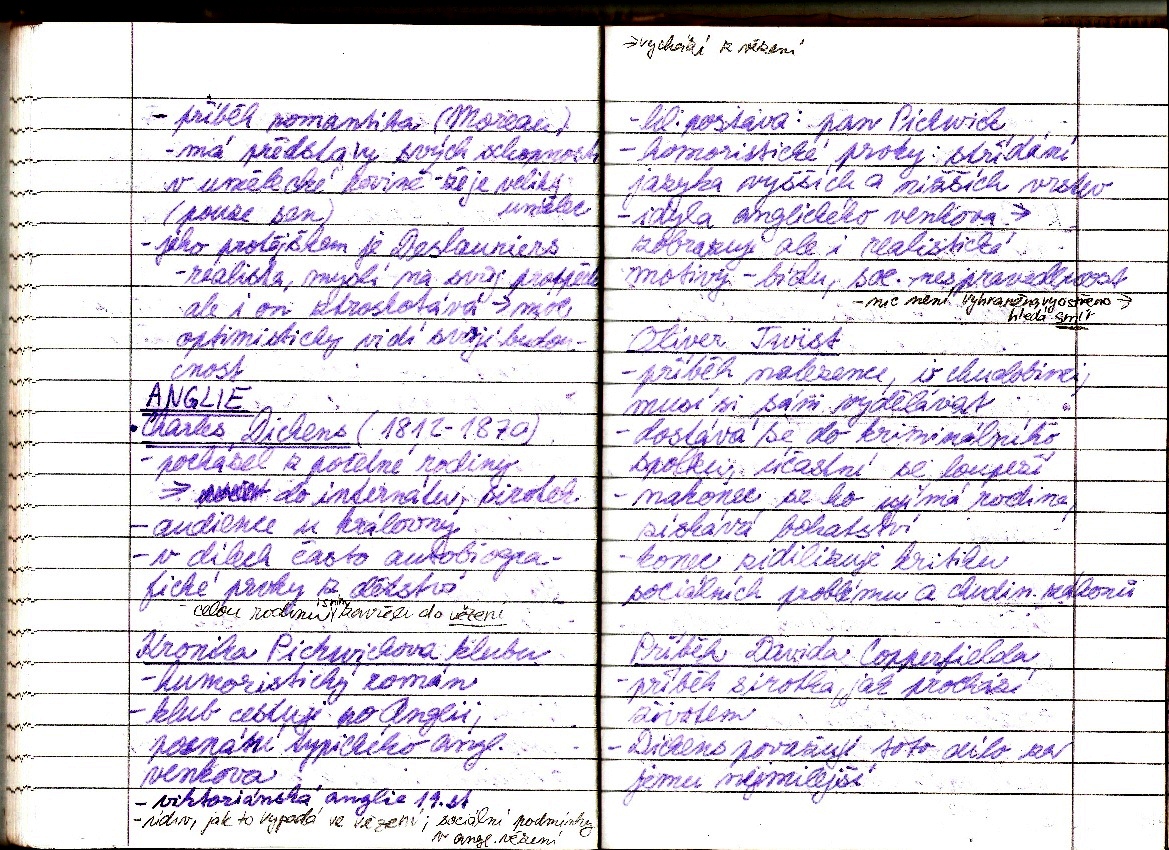 - příběh romantika (Moreau)
- má představy svých schopností
v umělecké rovině - že je veliký
(pouze sen) umělec
- jeho protějškem je Deslauriers
- realista, myslí na svůj prospěch
ale i on ztroskotává → moc
optimisticky vidí svojí budou-
cnost
ANGLIE
• Charles Dickens (1812-1870)
- pocházel z početné rodiny
→ do internátu, sirotek
- audience u královny
- v dílech často autobiogra-
fické prvky z dětství
- celou rodinu i s ním zavřeli do vězení
Kronika Pickwickova klubu
- humoristický román
- klub cestuje po Anglii,
poznání typického angl.
venkova
- viktoriánská anglie 19. st
- vidiv, jak to vypadá ve vězení; sociální podmínky
v angl. vězení
→ vychází z vězení
- hl. postava: pan Pickwick
- homoristické prvky: střídání
jazyka vyšších a nižších vrstev
- idyla anglického venkova →
zobrazuje ale i realistické
motivy - bídu, soc. nespravedlnost
- nic není vyhraněno, vyostřeno →
hledá smír
Oliver Twist
- příběh nalezence, v chudobinci,
musí si sám vydělávat
- dostává se do kriminálního
spolku, účastní se loupeží
- nakonec se ho ujímá rodina,
získává bohatství
- konec zidilizuje kritiku
sociálních problému a chudin. zákonů
Příběh Davida Copperfielda
- příběh sirotka, jak prochází
životem
- Dickens považuje toto dílo za
jemu nejmilejší